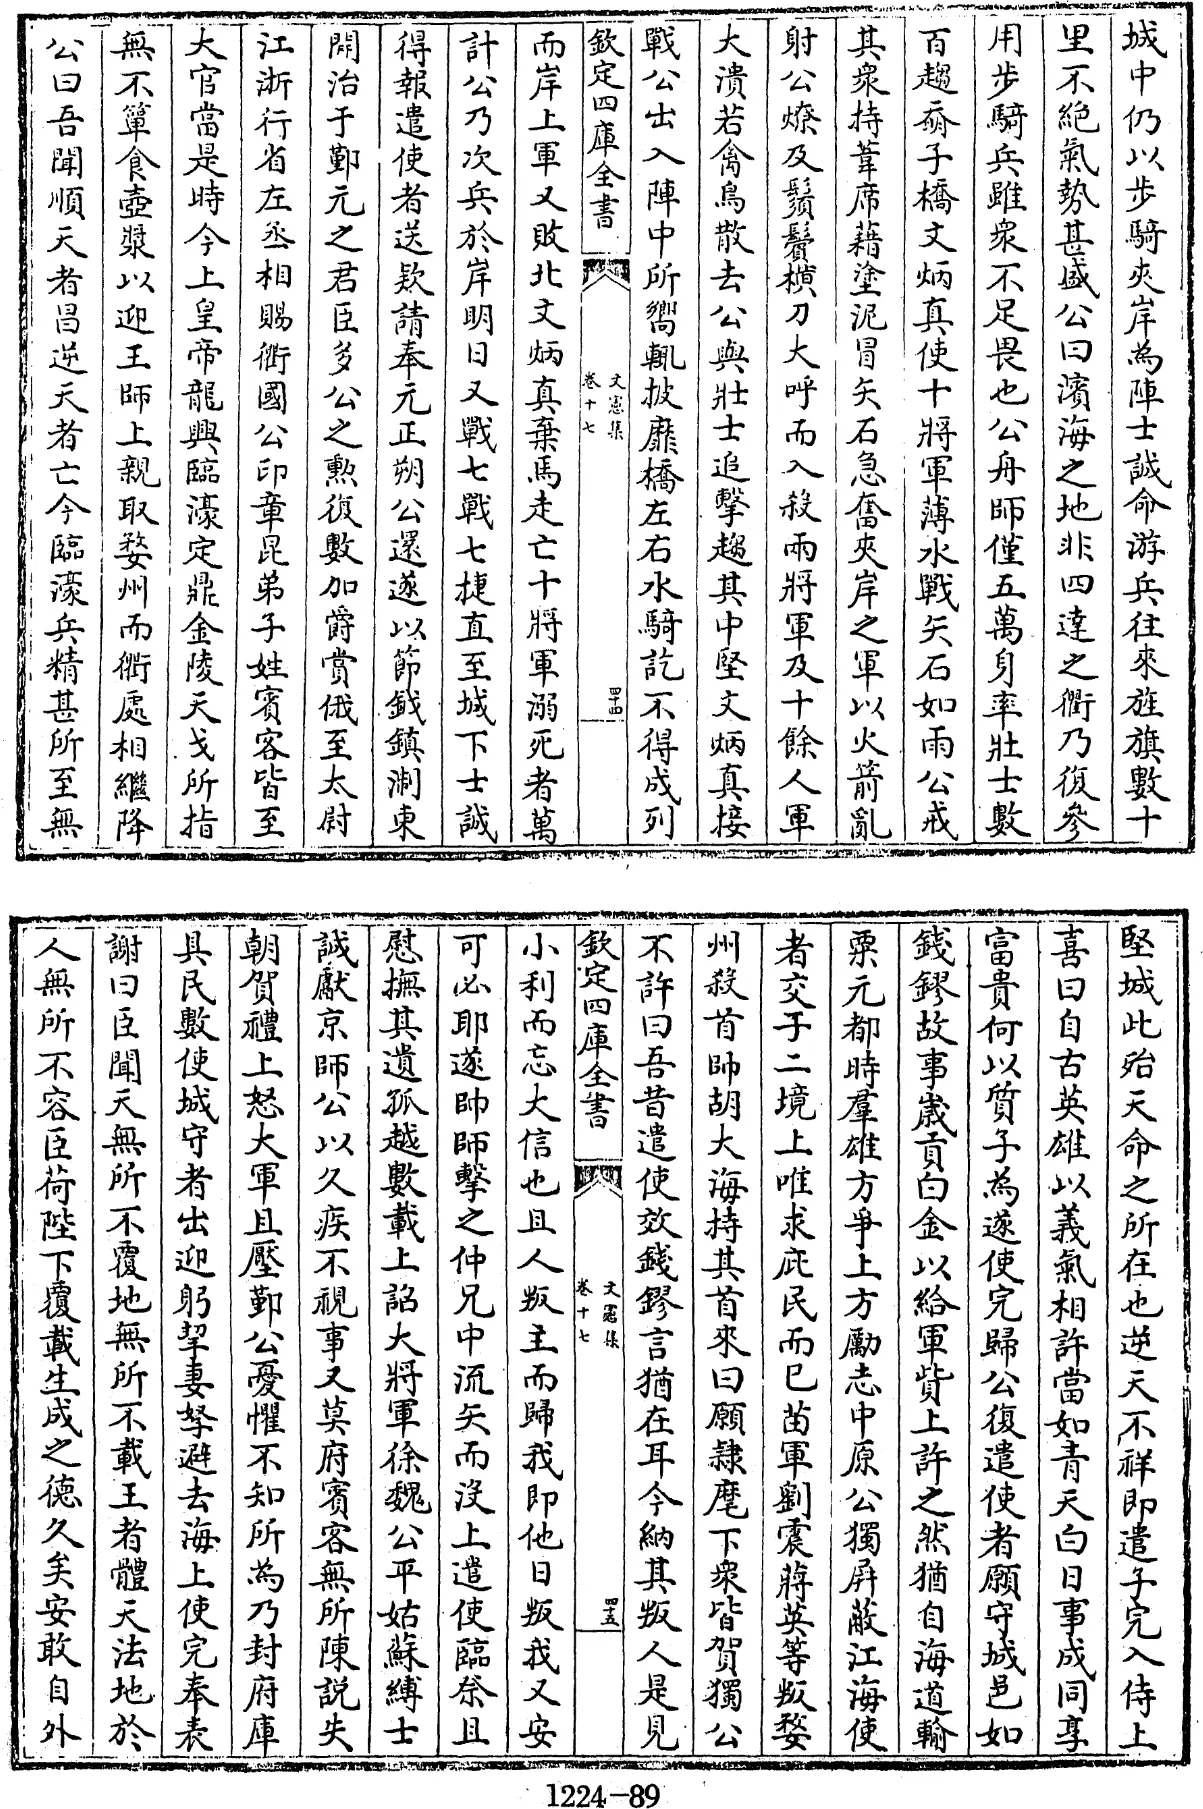 城中仍以步騎夾岸為陣士誠命游兵往來旌旗數十
里不絶氣勢甚盛公曰濱海之地非四達之衢乃復參
用步騎兵雖衆不足畏也公舟師僅五萬身率壯士數
百趨奣子橋文炳真使十將軍薄水戰矢石如雨公戒
其衆持葦席藉塗泥冒矢石急奮夾岸之軍以火箭亂
射公燎及鬚鬢横刀大呼而入殺兩將軍及十餘人軍
大潰若禽鳥散去公與壯士追擊趨其中堅文炳真接
戰公出入陣中所嚮輒披靡橋左右水騎訖不得成列
欽定四庫全書
文憲集
卷十七
四十四
而岸上軍又敗北文炳真棄馬走亡十將軍溺死者萬
計公乃次兵於岸明日又戰七戰七捷直至城下士誠
得報遣使者送欵請奉元正朔公還遂以節鉞鎮浙東
開治于鄞元之君臣多公之勲復數加爵賞俄至太尉
江浙行省左丞相賜衢國公印章昆弟子姓賓客皆至
大官當是時今上皇帝龍興臨濠定鼎金陵天戈所指
無不簞食壺漿以迎王師上親取婺州而衢處相繼降
公曰吾聞順天者昌逆天者亡今臨濠兵精甚所至無
堅城此殆天命之所在也逆天不祥即遣子完入侍上
喜曰自古英雄以義氣相許當如青天白日事成同享
富貴何以質子為遂使完歸公復遣使者願守城邑如
錢鏐故事歳貢白金以給軍貲上許之然猶自海道輸
粟元都時羣雄方爭上方勵志中原公獨屏蔽江海使
者交于二境上唯求庇民而已苗軍劉震蔣英等叛婺
州殺首帥胡大海持其首來曰願隸麾下衆皆賀獨公
不許曰吾昔遣使效錢鏐言猶在耳今納其叛人是見
欽定四庫全書
文憲集
卷十七
四十五
小利而忘大信也且人叛主而歸我即他日叛我又安
可必耶遂帥師擊之仲兄中流矢而沒上遣使臨祭且
慰撫其遺孤越數載上詔大將軍徐魏公平姑蘇縛士
誠獻京師公以久疾不視事又莫府賓客無所陳説失
朝賀禮上怒大軍且壓鄞公憂懼不知所為乃封府庫
具民數使城守者出迎躬挈妻孥避去海上使完奉表
謝曰臣聞天無所不覆地無所不載王者體天法地於
人無所不容臣荷陛下覆載生成之德久矣安敢自外
1224-89